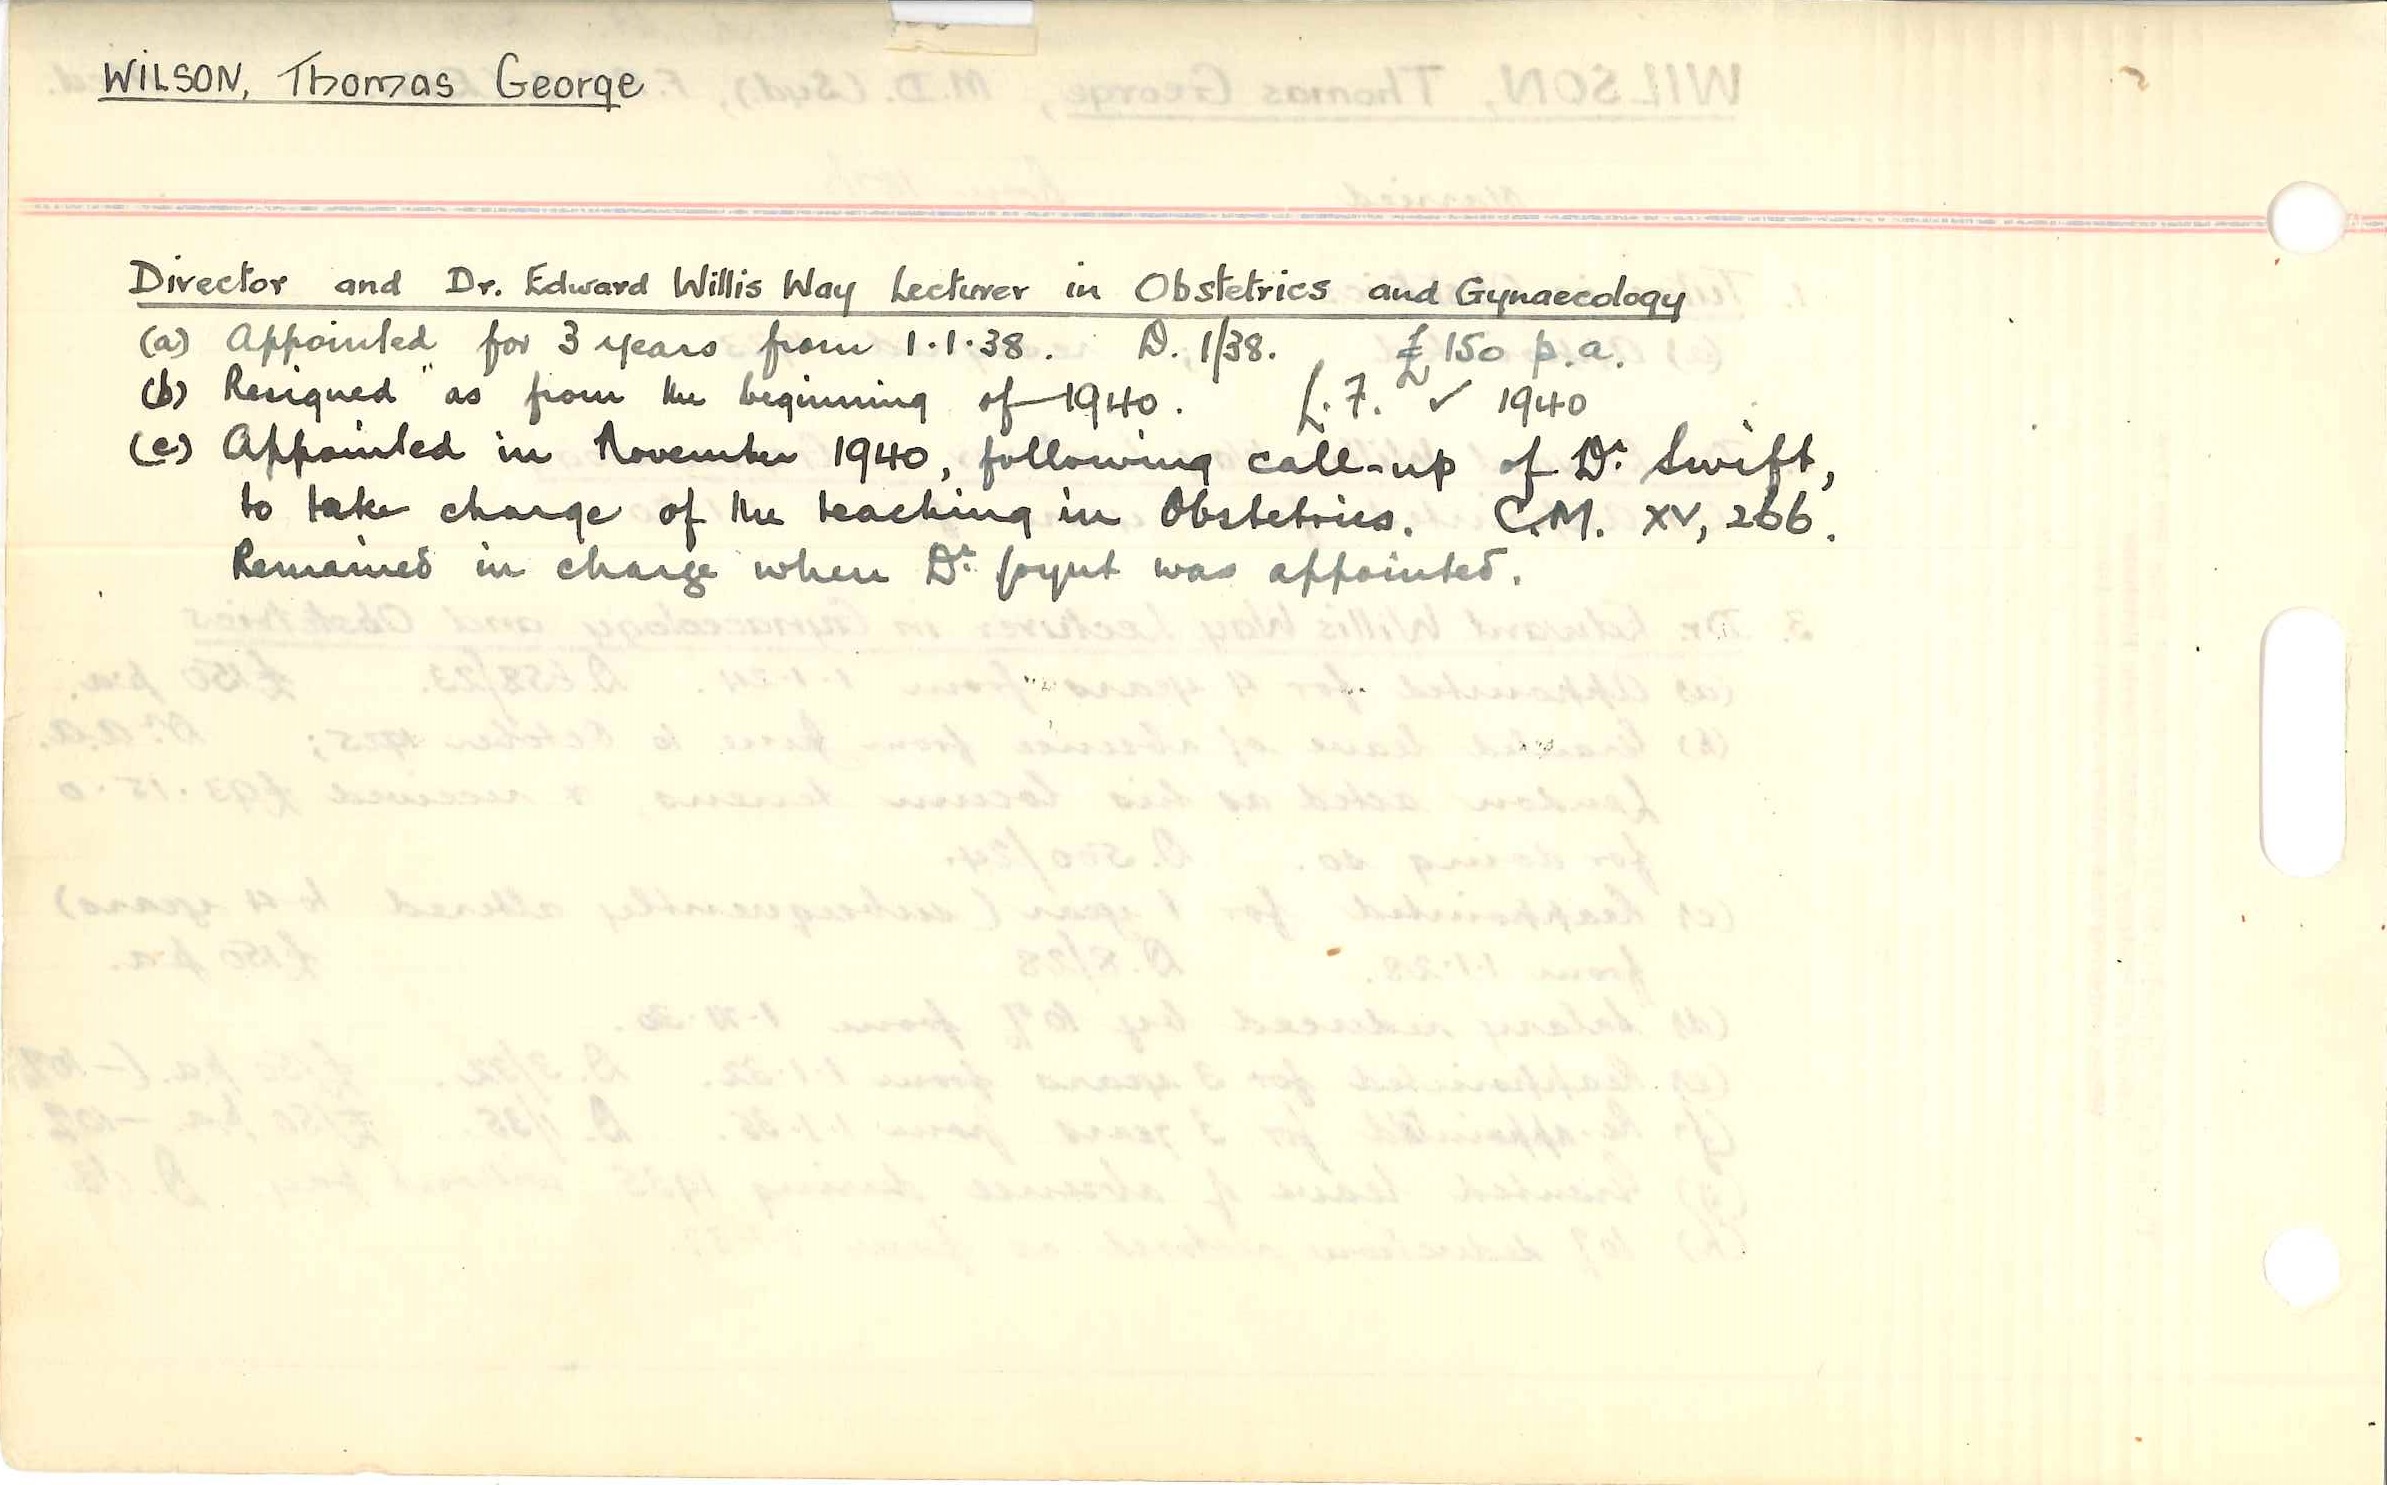 WILSON, Thomas George
Director and Dr. Edward Willis Way Lecturer in Obstetrics and Gynaecology
(a) Appointed for 3 years from 1.1.38. D. 1/38. £150 p.a.
(b) Resigned as from the beginning of 1940. 1940
(c) Appointed in November 1940, following call-up of Dr. Swift,
to take charge of the teaching in Obstetrics. C.M. XV, 266.
Remained in charge when Dr. Joynt was appointed.